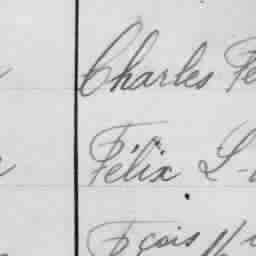 Charles Fe
Félix L-
Fçois